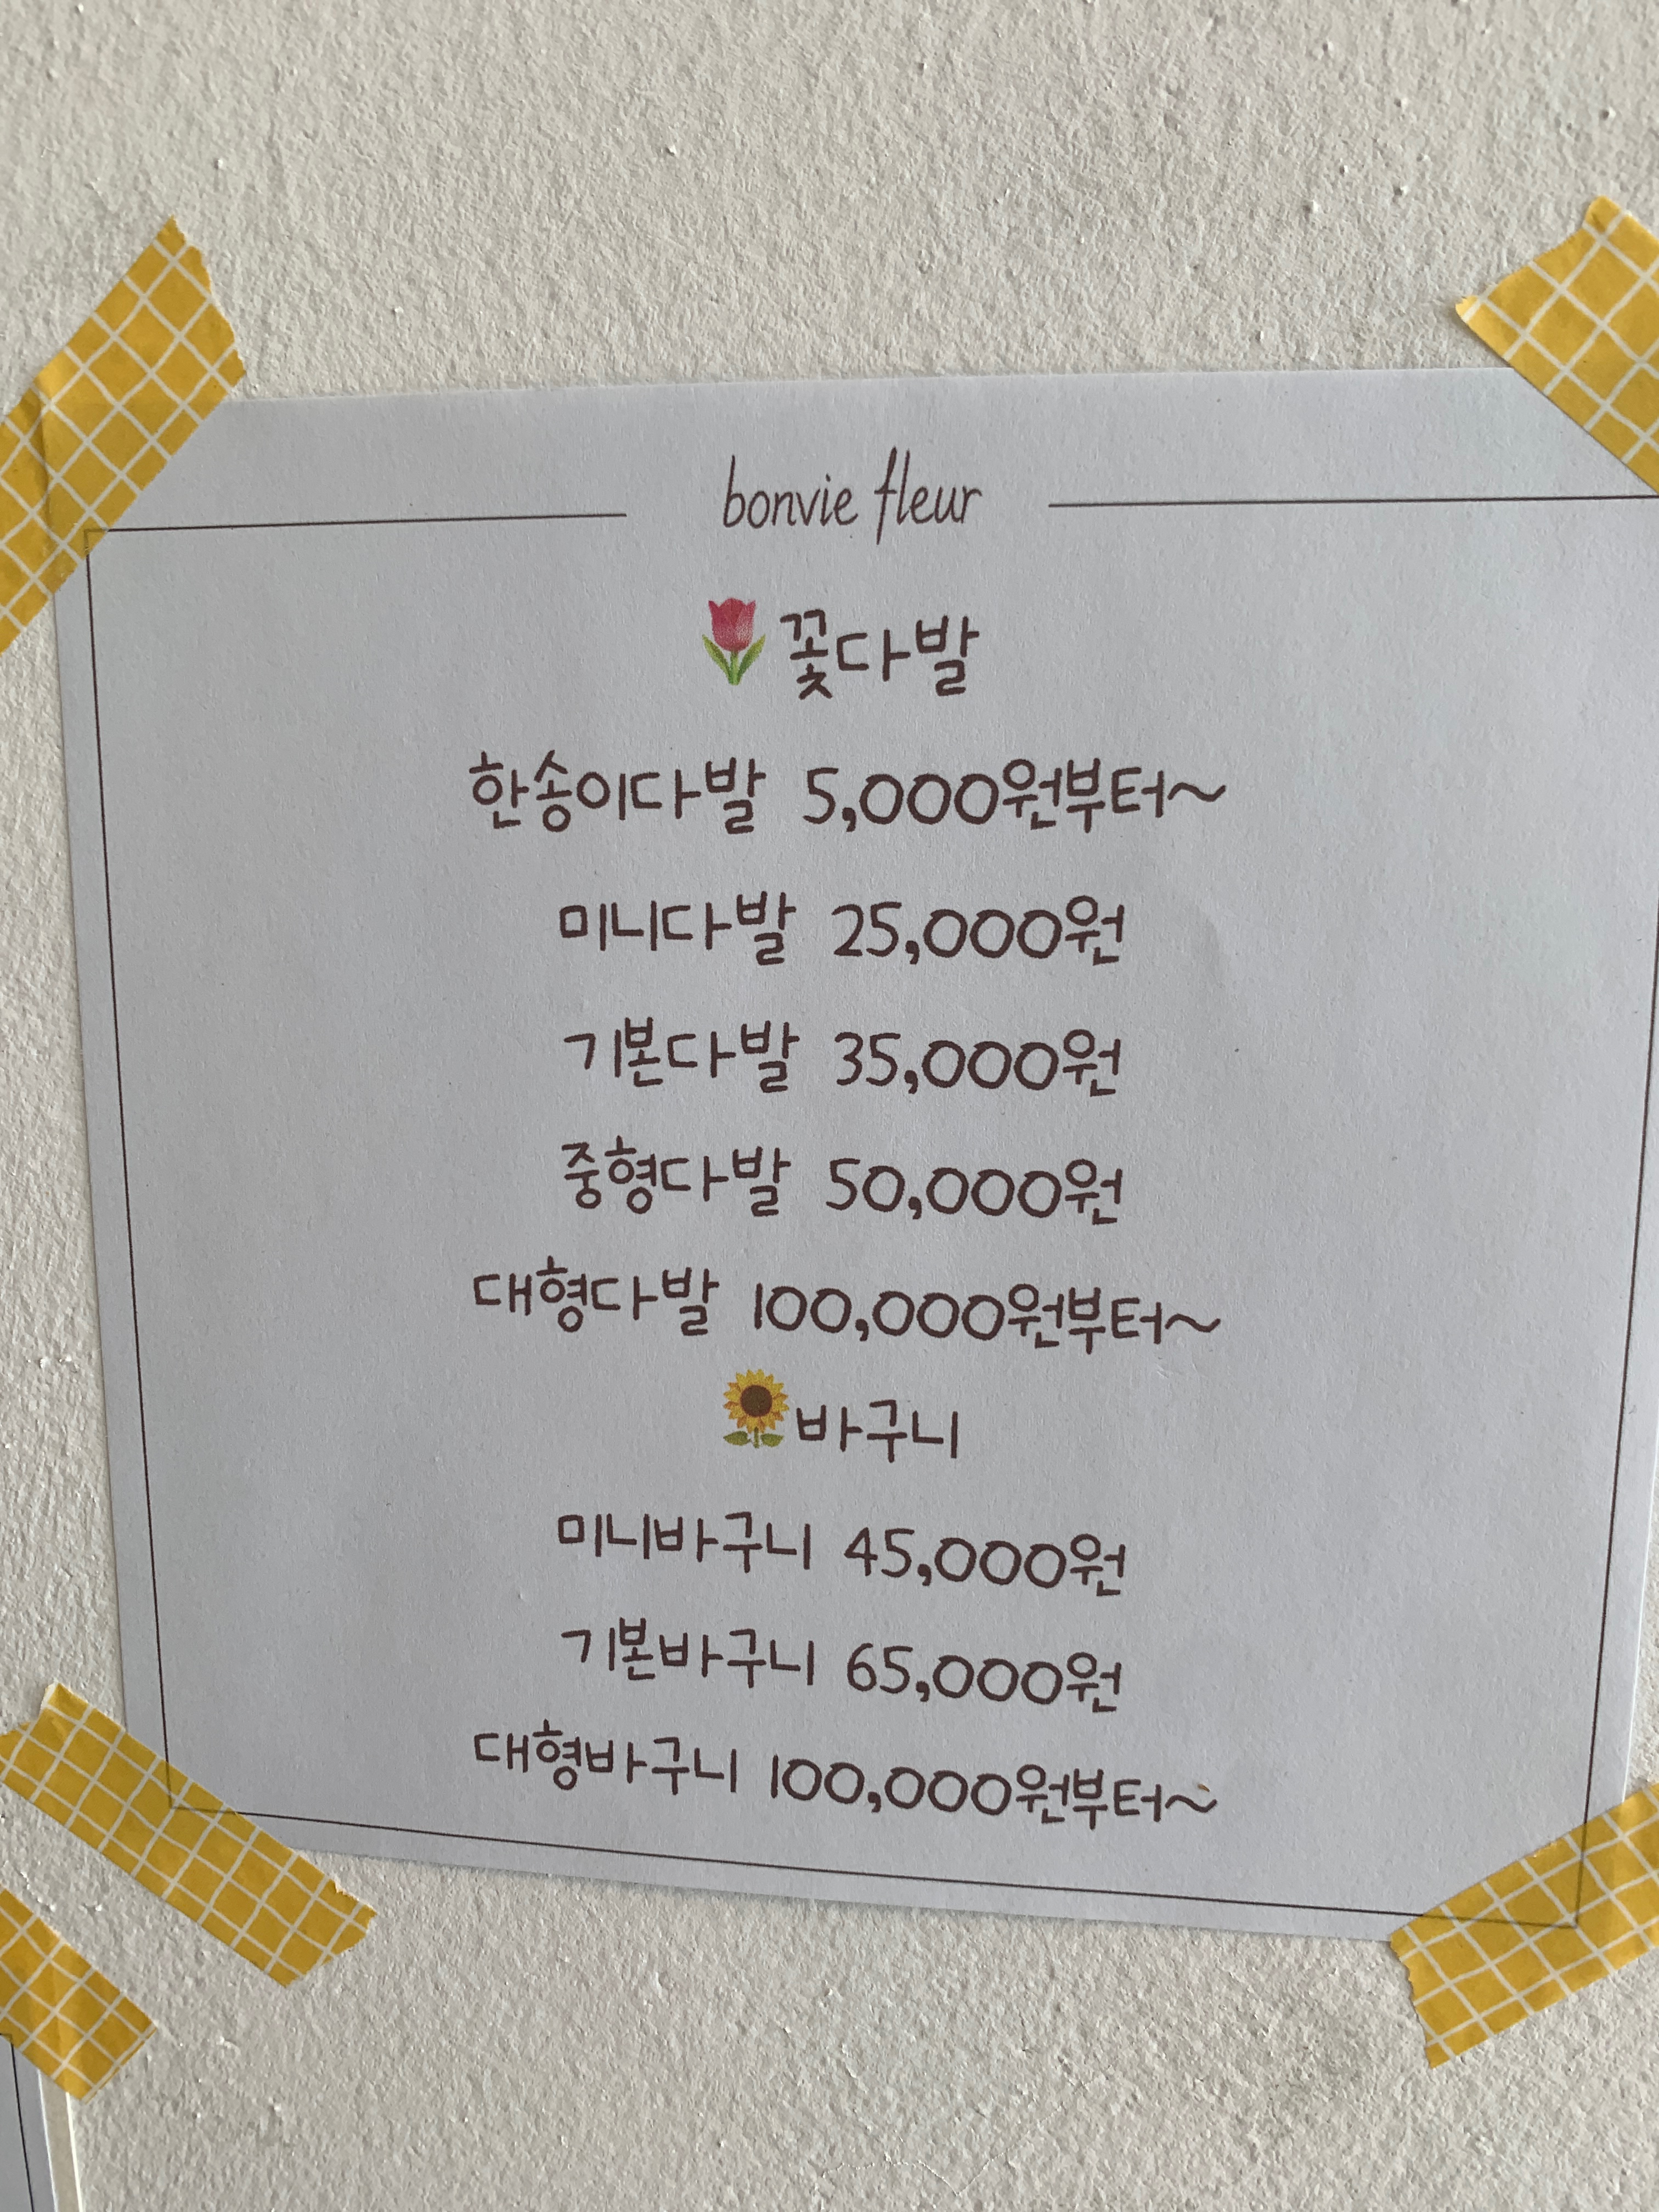 bonvie fleur
🌷꽃다발
한송이다발 5,000원부터~
미니다발 25,000원
기본다발 35,000원
중형다발 50,000원
대형다발 100,000원부터~
🌻바구니
미니바구니 45,000원
기본바구니 65,000원
대형바구니 100,000원부터~